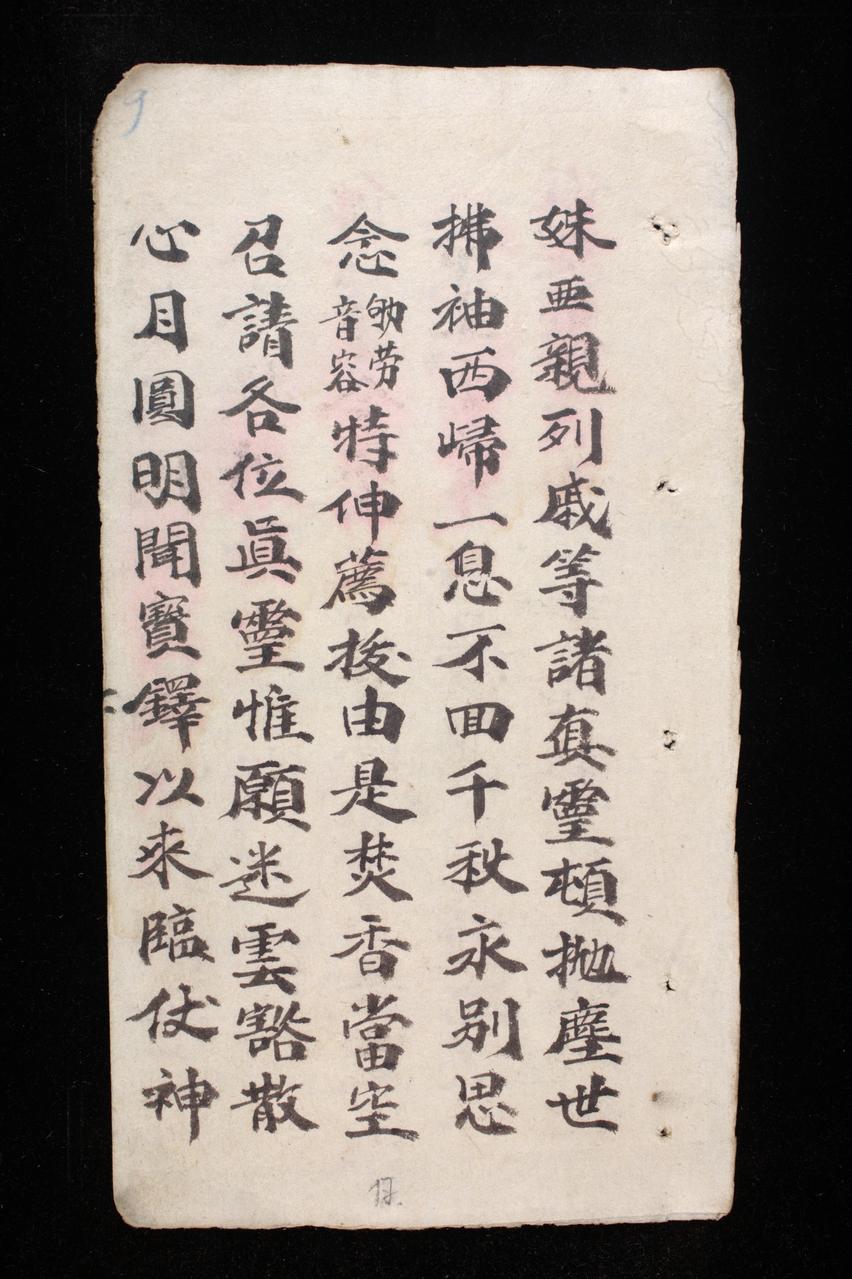 妹亜親列戚等諸真霊頓抛塵世
拂袖西歸一息不回千秋永别思
念劬劳音容特伸薦拔由是焚香當空
召請各位眞霊惟願迷雲豁散
心月圓明聞寳鐸以來臨仗神